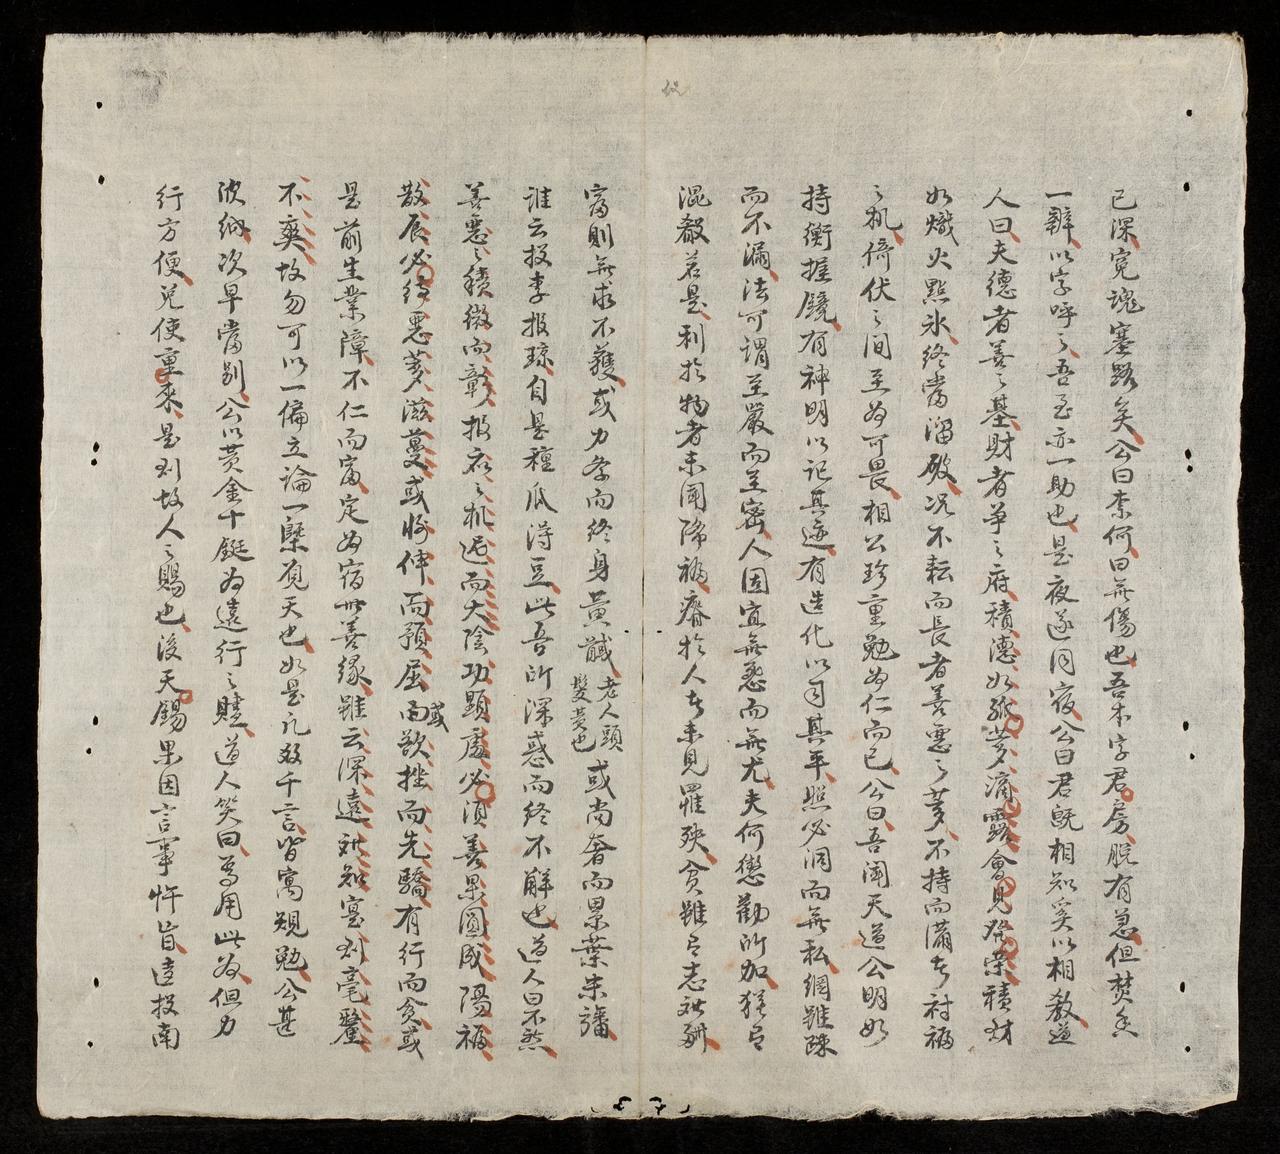 已深寃魂塞路矣公曰柰何曰無傷也吾本字君房脱有急但焚香
一辨以字呼之吾至亦一助也是夜遂同宿公曰君既相知奚以相教道
人曰夫德者善之基財者争之府積德如孤夢滴露會見發荣積財
如熾火㸃氷終當溜破况不耘而長者善悪之夢不持而滿者祸
之机倚伏之间至為可畏相公珍重勉為仁而已公曰吾闻天道公明如
持衡握鏡有神明以記其迹有造化以司其平照必洞而無私網雖踈
而不漏法可謂至嚴而至宻人固宜無怨而無尤夫何懲勸所加猶有
混殽若是利於物者未闻降福瘠於人者未見罹殃貪雖有志
富則無求不獲或力孝而終身黄馘老人頭髮黄也或尚奢而累葉朱
誰云投李报琼自是種瓜淂豆此吾所深惑而終不觧也道人曰不然
善悪之積微而彰报应之机迟而大陰功顕處必須善果圓成陽祸
散辰必待悪夢滋蔓或將伸而預屈或而欲挫而先驕有行而貪或
是前生業障不仁而富定為宿世善緣雖云深遠寔刘毫釐
不爽故勿可以一偏立論一槩覓天也如是凡数千言皆寓規勉公甚
次早當别公以黄金十錠為遠行之贐道人笑曰焉用此為但力
行方便免使重來是则故人之賜也後天錫果因言事忤旨逺投南